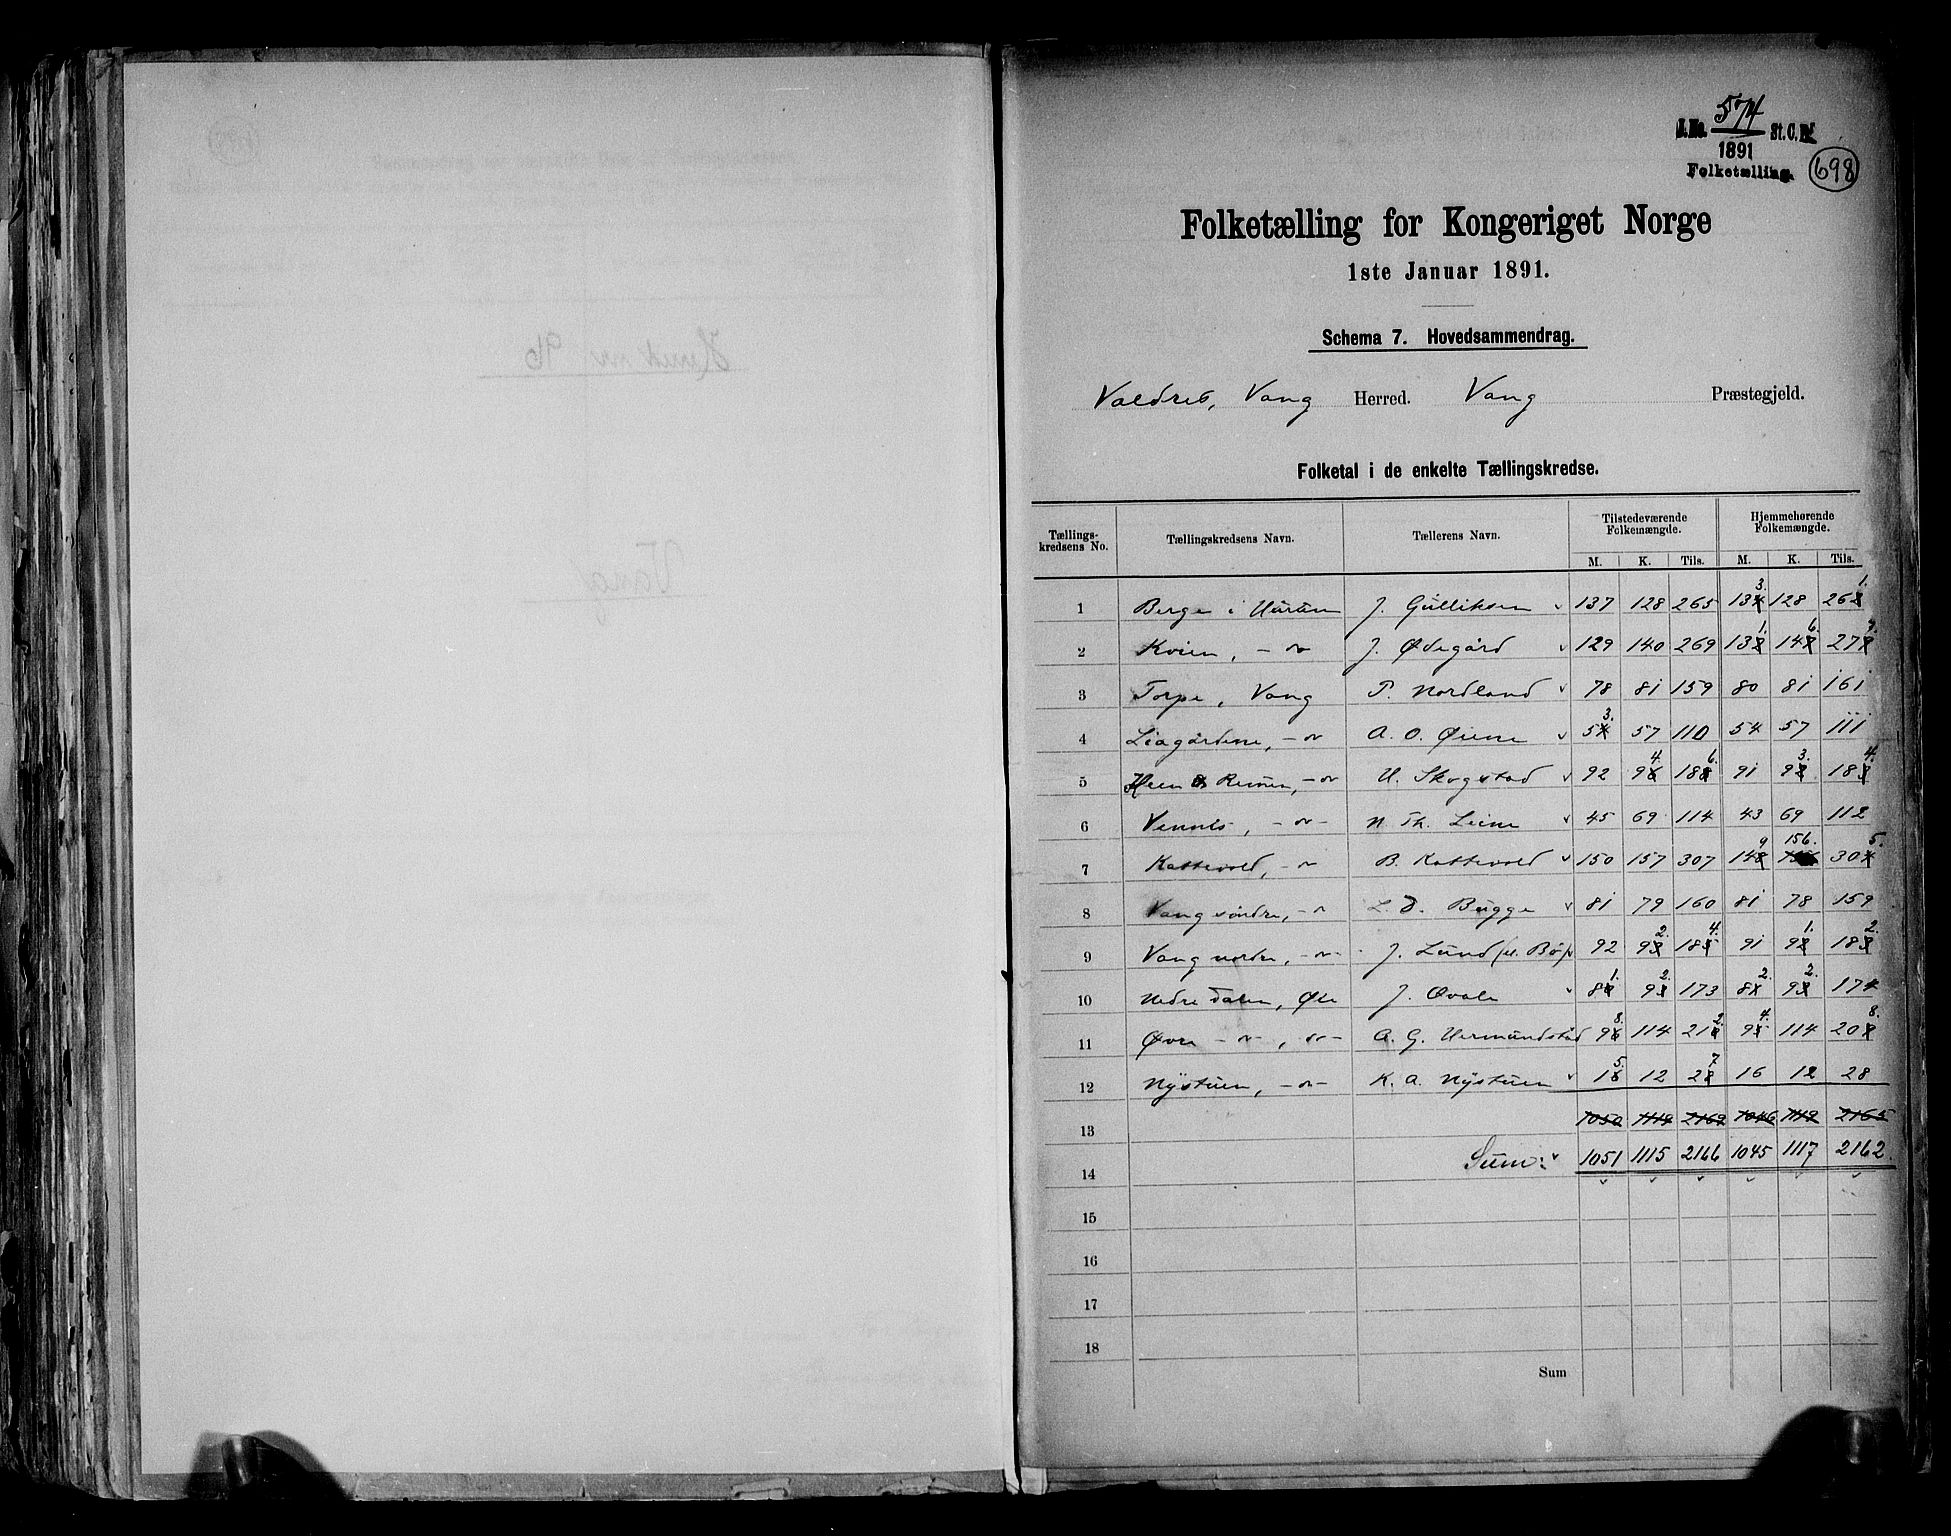 J.No. 574 St.C.B.
1891
Folketælling. 698
Folketælling for Kongeriget Norge
1ste Januar 1891.
Schema 7. Hovedsammendrag.
Valdres, Vang Herred. Vang Præstegjeld.
Folketal i de enkelte Tællingskredse.
Tællings-kredsens No. Tællingskredsens Navn. Tællerens Navn. Tilstedeværende Folkemængde. Hjemmehørende Folkemængde.
M. K. Tils. M. K. Tils.
1 Berge i Hurum J. Gulliksen 137 128 265 133 128 261
2 Kvien, - " - J. Ødegård 129 140 269 131 146 277
3 Torpe, Vang T. Nordland 78 81 159 80 81 161
4 Liagårdene, - " - A. O. Øiene 53 57 110 54 57 111
5 Heen & Remen, - " - H. Skogstad 92 94 186 91 93 184
6 Vennis, - " - N. Th. Leine 45 69 114 43 69 112
7 Kattevold, - " - B. Kattevold 150 157 307 149 156 305
8 Vang søndre, - " - L. D. Bugge 81 79 160 81 78 159
9 Vang nordre, - " - J. Lund 92 92 184 91 91 182
10 Nedre Dalen, Øie J. Qvale 81 92 173 82 92 174
11 Øvre - " - , - " - A. G. Hermundstad 98 114 212 94 114 208
12 Nystuen, - " - K. A. Nystuen 15 12 27 16 12 28
13 1050 1119 2169 1046 1119 2165
14 Sum: 1051 1115 2166 1045 1117 2162
15
16
17
18
Sum